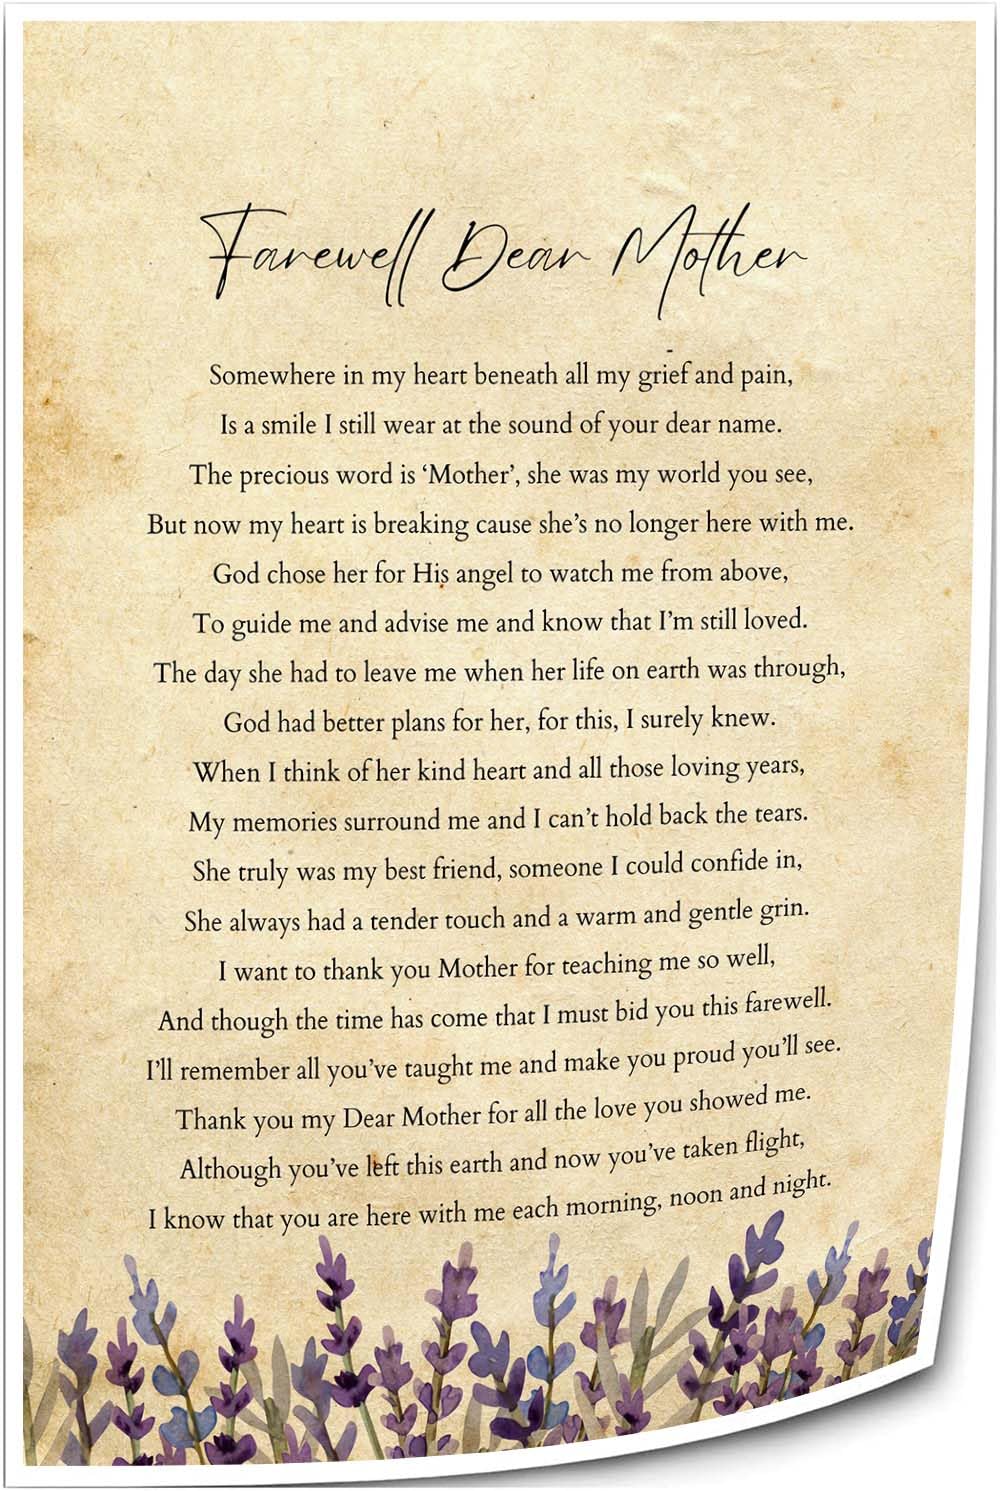 Farewell Dear Mother
Somewhere in my heart beneath all my grief and pain,
Is a smile I still wear at the sound of your dear name.
The precious word is ‘Mother’, she was my world you see,
But now my heart is breaking cause she’s no longer here with me.
God chose her for His angel to watch me from above,
To guide me and advise me and know that I’m still loved.
The day she had to leave me when her life on earth was through,
God had better plans for her, for this, I surely knew.
When I think of her kind heart and all those loving years,
My memories surround me and I can’t hold back the tears.
She truly was my best friend, someone I could confide in,
She always had a tender touch and a warm and gentle grin.
I want to thank you Mother for teaching me so well,
And though the time has come that I must bid you this farewell.
I’ll remember all you’ve taught me and make you proud you’ll see.
Thank you my Dear Mother for all the love you showed me.
Although you’ve left this earth and now you’ve taken flight,
I know that you are here with me each morning, noon and night.